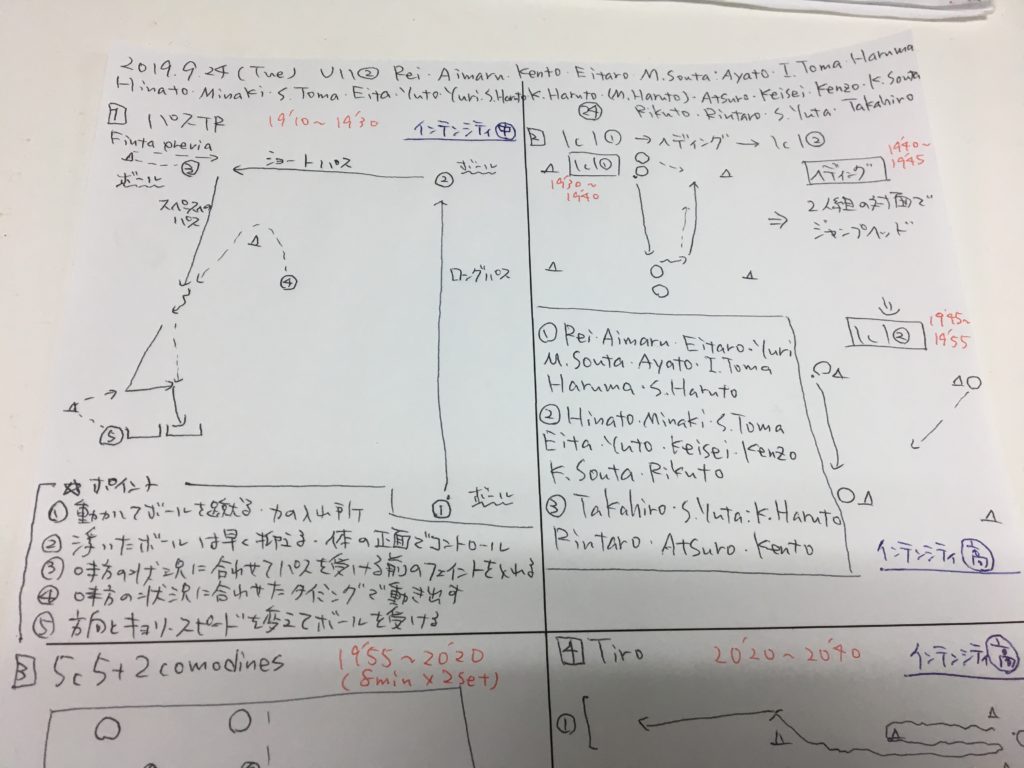 2019.9.24 (Tue) U11② Rei・Aimaru・Kento・Eitaro・M.Souta・Ayato・I.Toma・Haruma
Hinato・Minaki・S.Toma・Eita・Yuto・Yuri・S.Haruto・K.Haruto・(M.Haruto)・Atsuro・Keisei・Kenzo・K.Souta
㉔ Rikuto・Rintaro・S.Yuta・Takahiro
1 パスTR 19'10~19'30 インテンシティ㊥
Finta previa
③
ボール
ショートパス
②
ボール
スペースへの
パス
④
ロングパス
⑤
①
ボール
☆ポイント
① 動かしてボールを蹴る・力の入れ所
② 浮いたボールは早く抑える・体の正面でコントロール
③ 味方の状況に合わせてパスを受ける前のフェイントを入れる
④ 味方の状況に合わせたタイミングで動き出す
⑤ 方向とキョリ・スピードを変えてボールを受ける
2 1c1① → ヘディング → 1c1②
1c1①
19'30~
19'40
ヘディング
19'40~
19'45
⇒ 2人組の対面で
ジャンプヘッド
1c1②
19'45~
19'55
① Rei・Aimaru・Eitaro・Yuri
M.Souta・Ayato・I.Toma
Haruma・S.Haruto
② Hinato・Minaki・S.Toma
Eita・Yuto・Keisei・Kenzo
K.Souta・Rikuto
③ Takahiro・S.Yuta・K.Haruto
Rintaro・Atsuro・Kento
インテンシティ㊤高
3 5c5+2comodines 19'55~20'20
(8min×2set)
4 Tiro 20'20~20'40 インテンシティ高
①